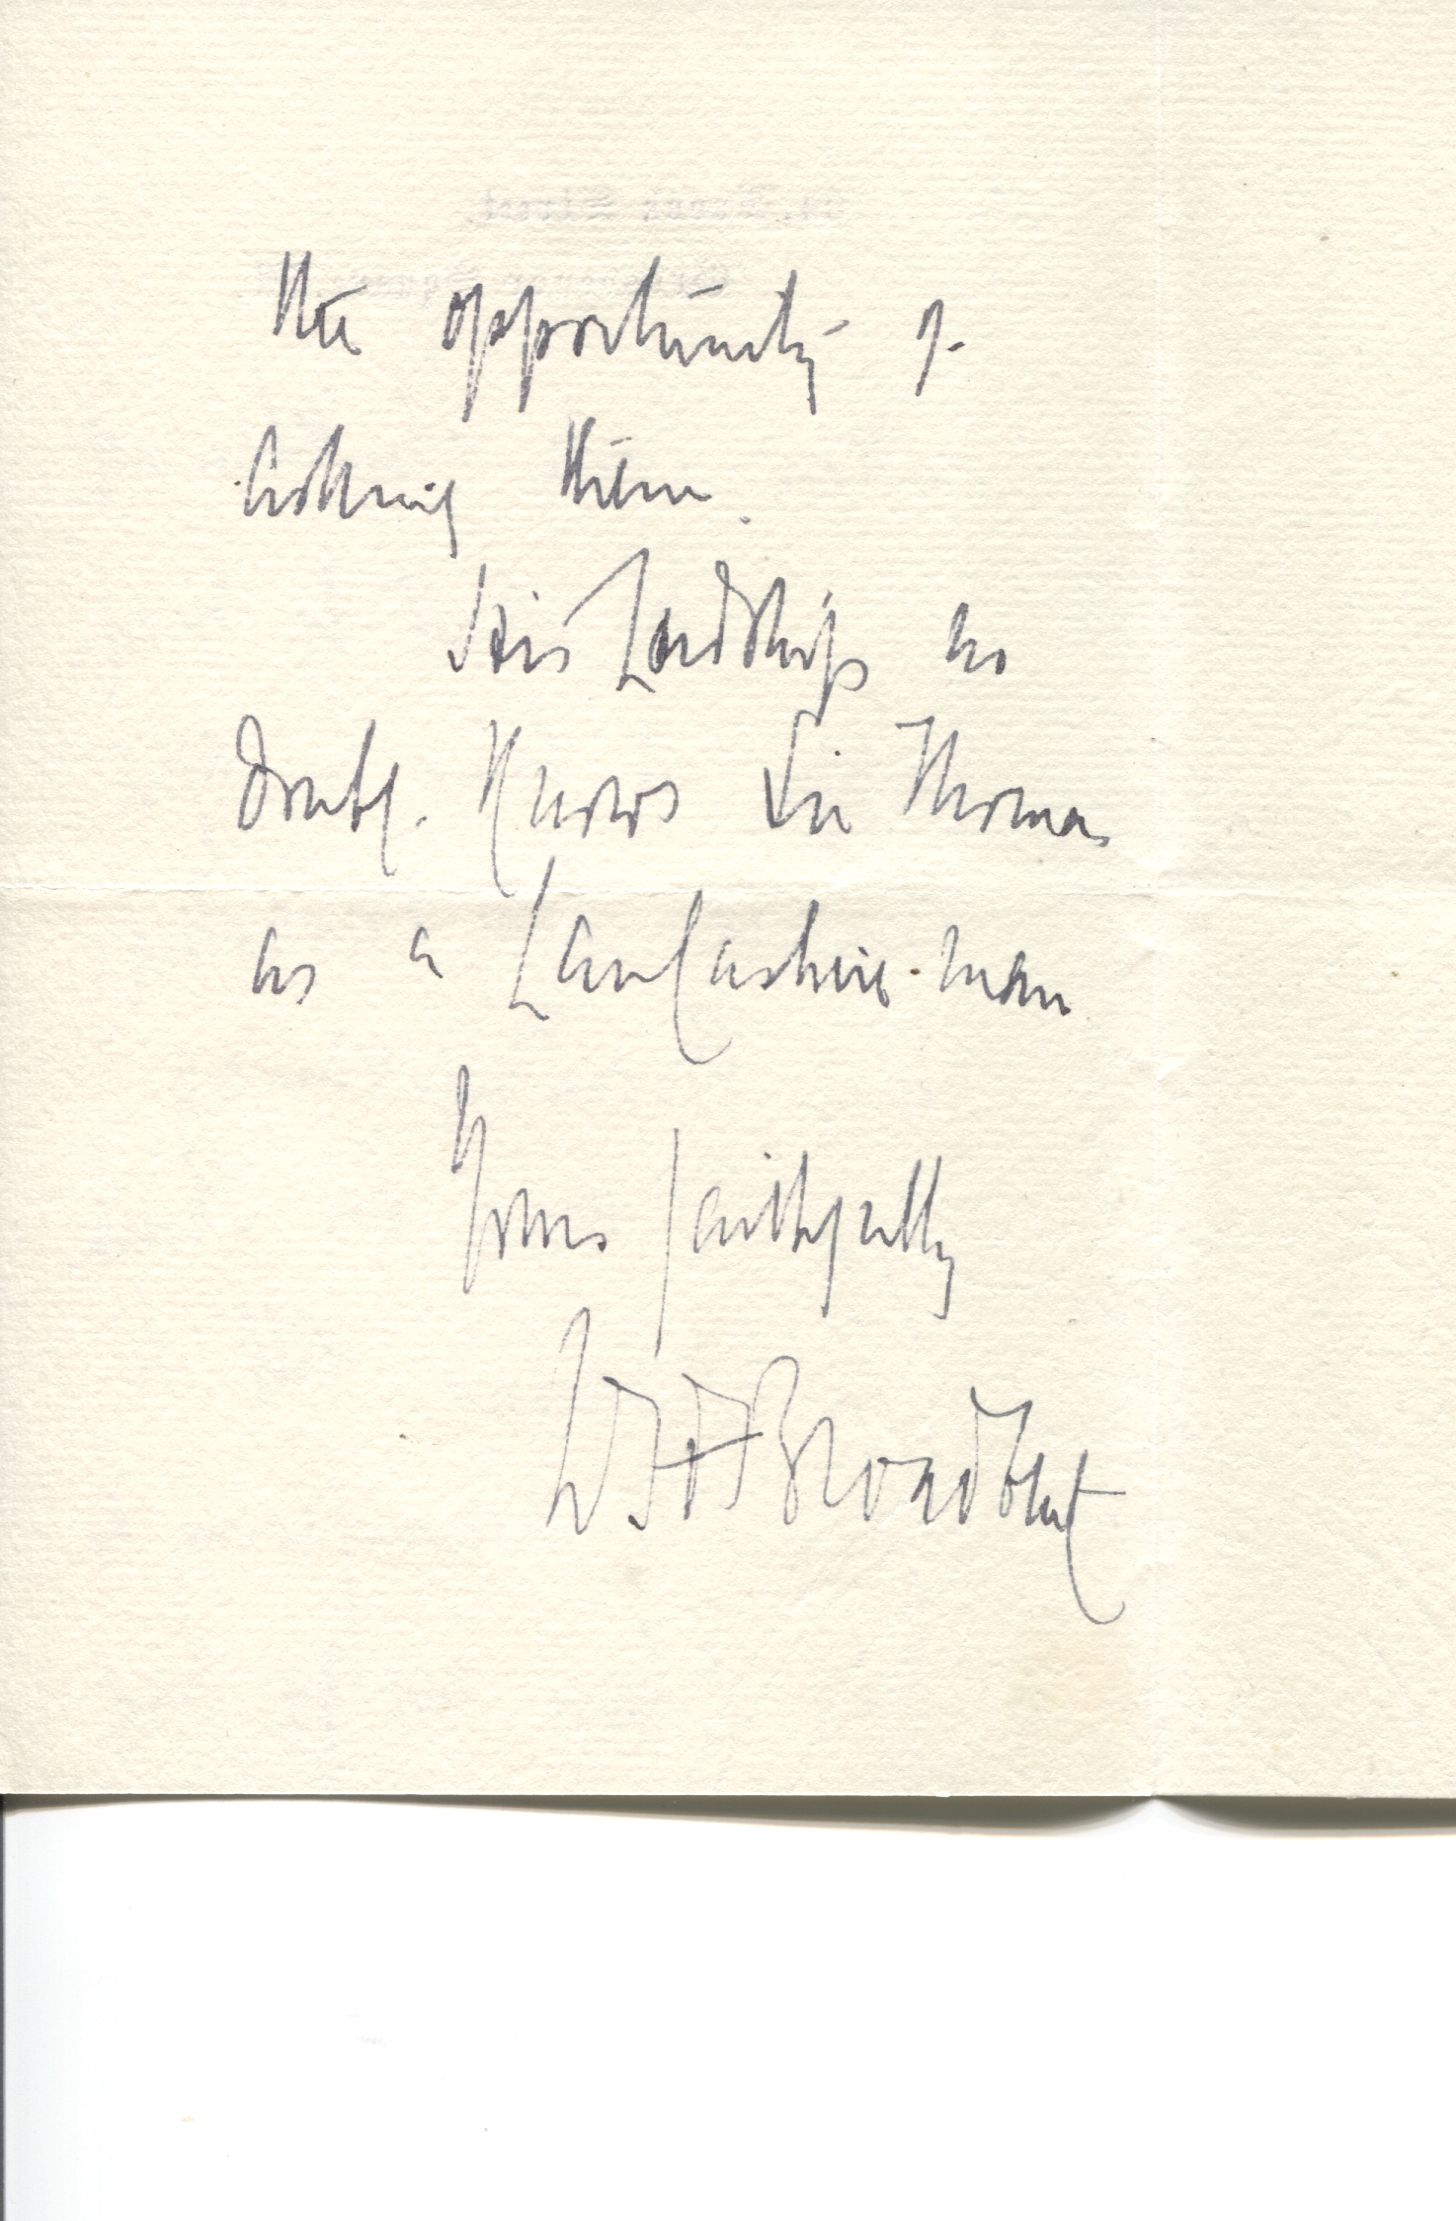 the opportunity of
asking them.
His Lordship no
doubt. knows Sir Thomas
as a Lancashire man
Yours faithfully
Broadbent